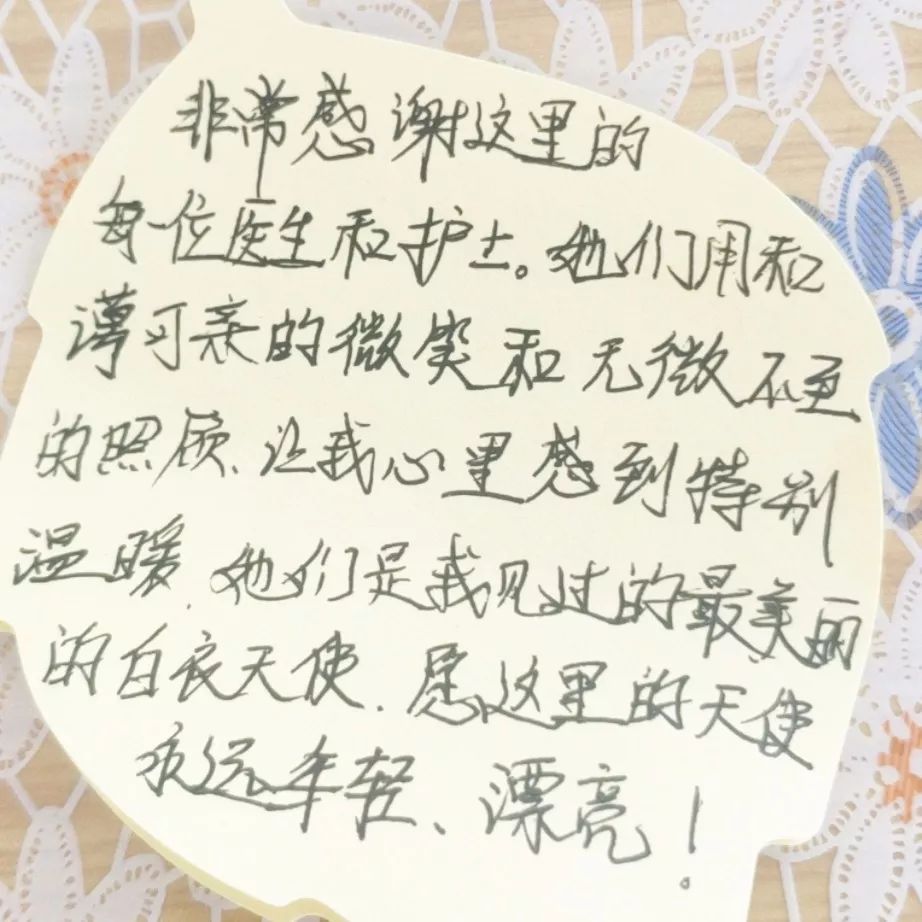 非常感谢这里的
每位医生和护士。她们用和
蔼可亲的微笑和无微不至
的照顾、让我心里感到特别
温暖、她们是我见过的最美丽
的白衣天使、愿这里的天使
永远年轻、漂亮!